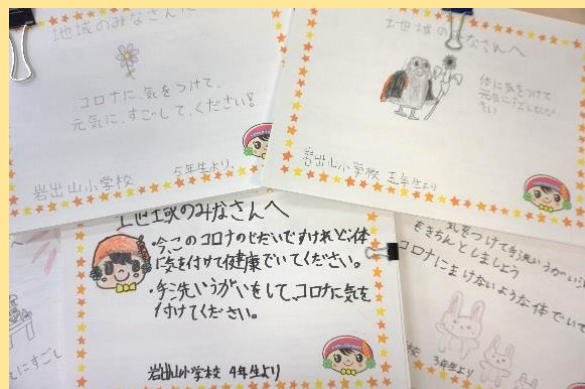 地域のみなさんへ
コロナに、気をつけて、
元気に、すごして、ください!
岩出山小学校 5年生より。
地域のみなさんへ
体に気をつけて
元気に
さい
岩出山小学校 五年生より
地域のみなさんへ
・今このコロナのじだいですけれど、体
に気を付けて健康でいてください。
・手洗いうがいをして、コロナに気を
付けてください。
岩出山小学校 4年生より
にすごし
気をつけて手洗いうがい
をきちんとしましょう
コロナにまけないような体でい
校 3年生より